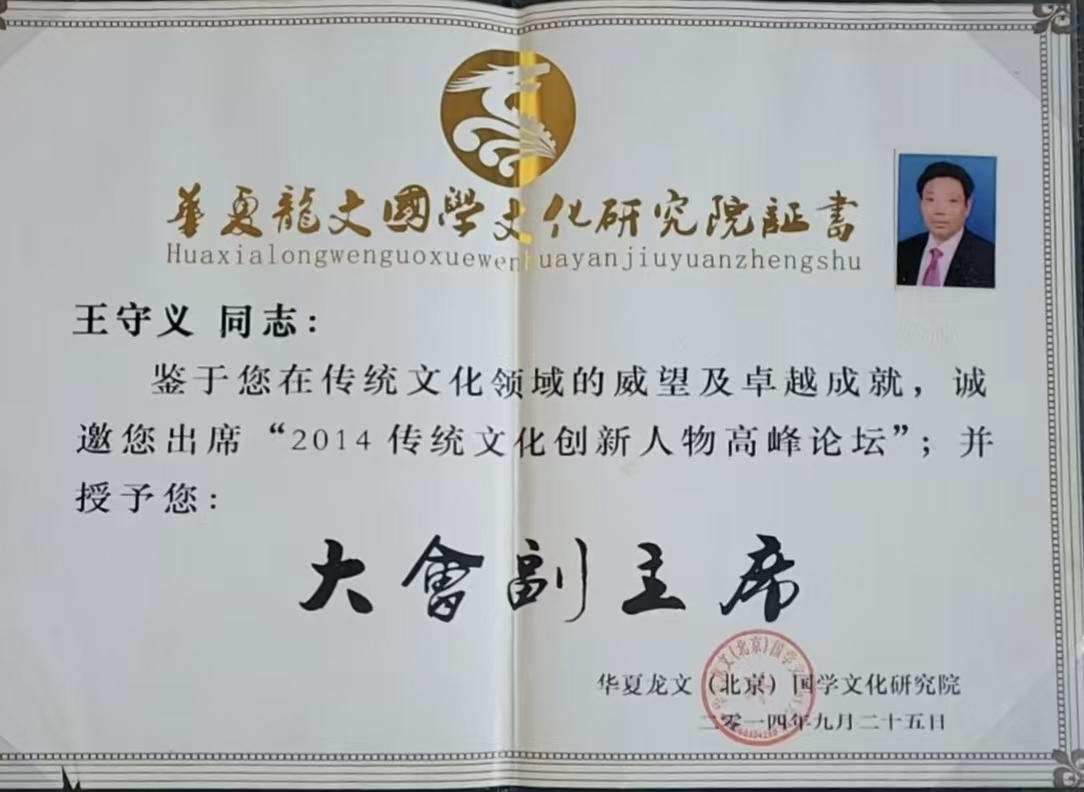 華夏龍文國學文化研究院証書
Huaxialongwenguoxuewenhuayanjiuyuanzhengshu
王守义 同志：
鉴于您在传统文化领域的威望及卓越成就，诚
邀您出席“2014传统文化创新人物高峰论坛”；并
授予您：
大會副主席
华夏龙文（北京）国学文化研究院
二零一四年九月二十五日